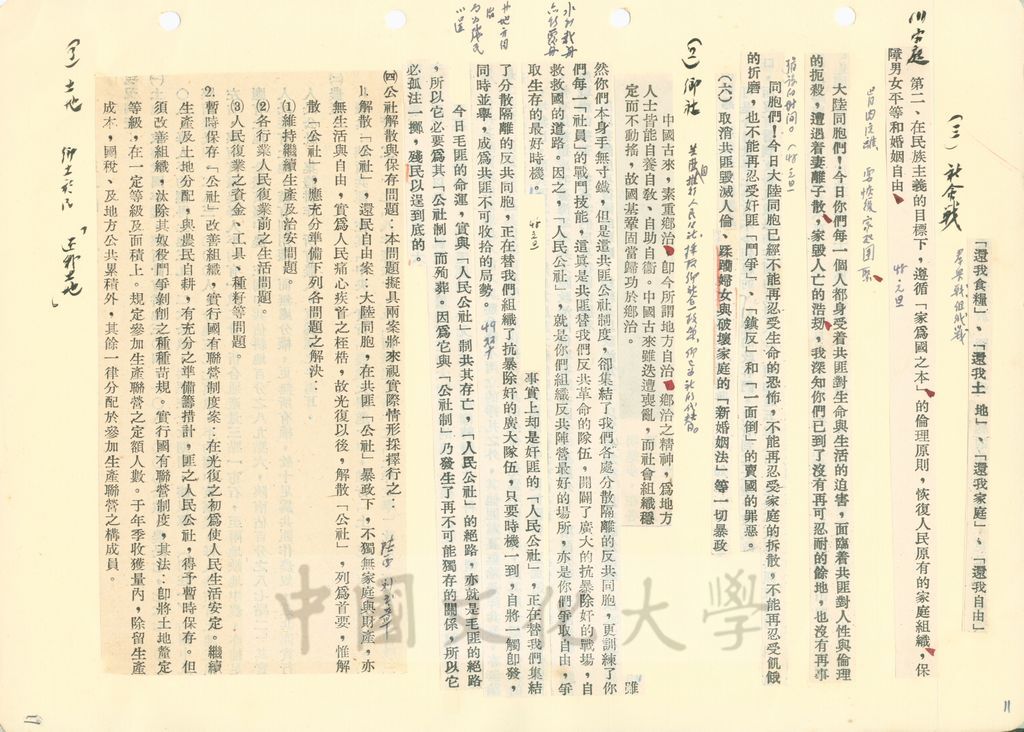 (三)社會戰
「還我食糧」、「還我土地」、「還我家庭」、「還我自由」
川家庭
第二、在民族主義的目標下，遵循「家爲國之本」的倫理原則，恢復人民原有的家庭組織，保
障男女平等和婚姻自由、
四八、元旦
大陸同胞們！今日你們每一個人都身受着共匪對生命與生活的迫害，面臨着共匪對人性與倫理
的扼殺，遭遇着妻離子散、家毀人亡的浩劫，我深知你們已到了沒有再可忍耐的餘地，也沒有再事
同胞們！今日大陸同胞已經不能再忍受生命的恐怖，不能再忍受家庭的拆散，不能再忍受飢餓
的折磨，也不能再忍受奸匪「鬥爭」、「鎮反」和「一面倒」的賣國的罪惡。
(六)取消共匪毀滅人倫、蹂躪婦女與破壞家庭的「新婚姻法」等一切暴政
(二)鄉社
中國古來，素重鄉治，卽今所謂地方自治，鄉治之精神，爲地方
人士皆能自養自敎、自助自衞。中國古來雖迭遭喪亂，而社會組織穩
定而不動搖，故國基鞏固當歸功於鄉治。
雖
然你們本身手無寸鐵，但是這共匪公社制度，卻集結了我們各處分散隔離的反共同胞，更訓練了你
們每一「社員」的戰鬥技能，這眞是共匪替我們反共革命的隊伍，開闢了廣大的抗暴除奸的戰場，自
救救國的道路。因之，「人民公社」，就是你們組織反共陣營最好的場所，亦是你們爭取自由，爭
取生存的最好時機。
事實上却是奸匪的「人民公社」，正在替我們集結
了分散隔離的反共同胞，正在替我們組織了抗暴除奸的廣大隊伍，只要時機一到，自將一觸卽發，
同時並舉，成爲共匪不可收拾的局勢。
今日毛匪的命運，實與「人民公社」制共其存亡，「人民公社」的絕路，亦就是毛匪的絕路
，所以它必要爲其「公社制」而殉葬。因爲它與「公社制」乃發生了再不可能獨存的關係，所以它
必孤注一擲，殘民以逞到底的。
㈣公社解散與保存問題：本問題擬具兩案將來視實際情形採擇行之：
1.解散「公社」，還民自由案：大陸同胞，在共匪「公社」暴政下，不獨無家庭與財產，亦
無生活與自由，實爲人民痛心疾首之桎梏，故光復以後，解散「公社」，列爲首要，惟解
散「公社」，應充分準備下列各問題之解決：
⑴維持繼續生產及治安問題。
⑵各行業人民復業前之生活問題。
⑶人民復業之資金、工具、種籽等問題。
2.暫時保存「公社」改善組織，實行國有聯營制度案：在光復之初爲使人民生活安定。繼續
生產及土地分配，與農民自耕，有充分之準備籌措計，匪之人民公社，得予暫時保存。但
須改善組織，汰除其奴役鬥爭剝削之種種苛規。實行國有聯營制度，其法：卽將土地釐定
等級，在一定等級及面積上。規定參加生產聯營之定額人數。于年季收獲量內，除留生產
成本，國稅、及地方公共累積外，其餘一律分配於參加生產聯營之構成員。
(3)土地
中國文化大學
11